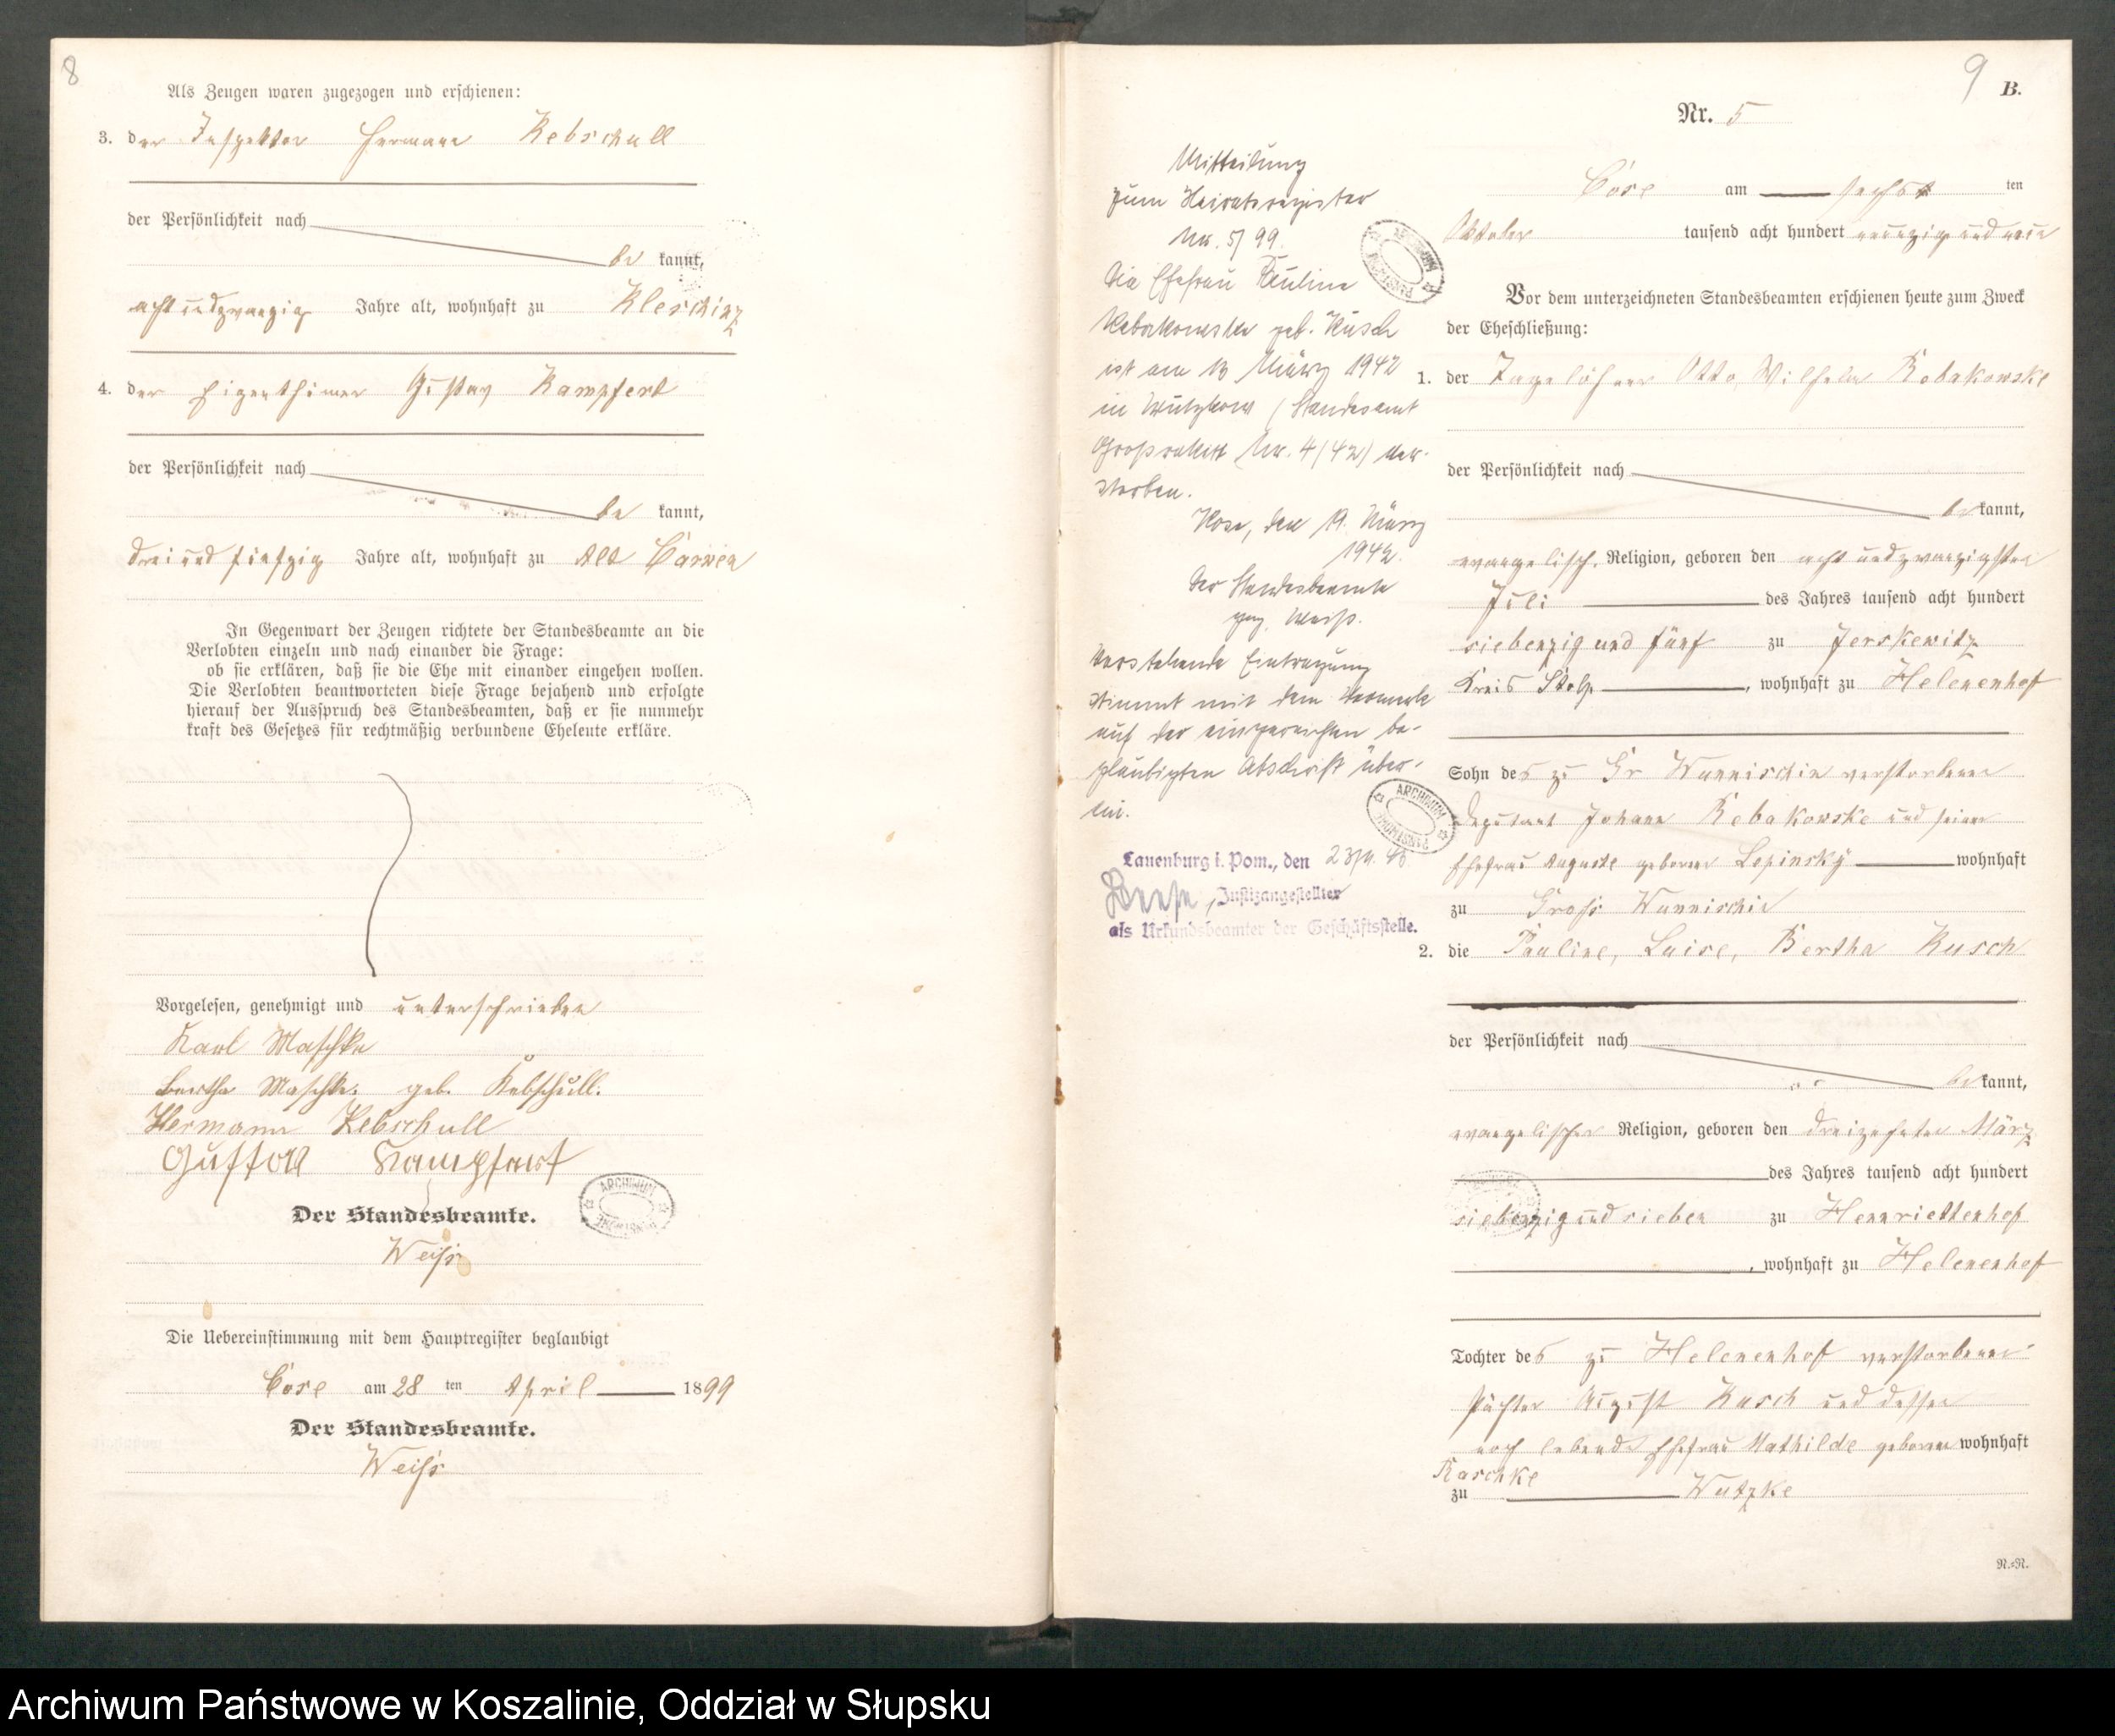 8
Als Zeugen waren zugezogen und erschienen:
3. der Inspektor Hermann Kebschull
der Persönlichkeit nach
be kannt,
acht und zwanzig Jahre alt, wohnhaft zu Kleschinz
4. der Eigenthümer Gustav Kampfert
der Persönlichkeit nach
be kannt,
drei und fünfzig Jahre alt, wohnhaft zu Alt Carwen
In Gegenwart der Zeugen richtete der Standesbeamte an die
Verlobten einzeln und nach einander die Frage:
ob sie erklären, daß sie die Ehe mit einander eingehen wollen.
Die Verlobten beantworteten diese Frage bejahend und erfolgte
hierauf der Ausspruch des Standesbeamten, daß er sie nunmehr
kraft des Gesetzes für rechtmäßig verbundene Eheleute erkläre.
Vorgelesen, genehmigt und unterschrieben
Karl Maschke
Bertha Maschke. geb. Kebschull.
Hermann Kebschull
Gustav Kampfert
Der Standesbeamte.
ARCHIWUM PAŃSTWOWE
Weiß
Die Uebereinstimmung mit dem Hauptregister beglaubigt
Cose am 28 ten April 1899
Der Standesbeamte.
Weiß
9
B.
Nr. 5
Mitteilung
zum Heiratsregister
Nr. 5/99.
Die Ehefrau Pauline
geb. Kusch
ist am 13 März 1942
in Wutzkow (Standesamt
Großrakitt Nr. 4/42) ver-
storben.
Kose, den 19. März
1942.
Der Standesbeamte
gez. Weiß.
Vorstehende Eintragung
stimmt mit dem Vermerk
auf der eingereichten be-
glaubigten Abschrift über-
ein.
ARCHIWUM PAŃSTWOWE
ARCHIWUM PAŃSTWOWE
Lauenburg i. Pom., den
, Justizangestellter
als Urkundsbeamter der Geschäftsstelle.
Cose am sechst ten
Oktober tausend acht hundert neunzig und neun
Vor dem unterzeichneten Standesbeamten erschienen heute zum Zweck
der Eheschließung:
1. der Tagelöhner Otto Wilhelm Robakowske
der Persönlichkeit nach
be kannt,
evangelisch. Religion, geboren den acht und zwanzigsten
Juli des Jahres tausend acht hundert
siebenzig und fünf zu Jerskewitz
Kreis Stolp , wohnhaft zu Helenenhof
Sohn des zu Gr Wunnischin verstorbenen
Deputant Johann Robakowske und seiner
Ehefrau Auguste geborene Lepinsky wohnhaft
zu Groß Wunnischin
2. die Pauline, Luise, Bertha Kusch
der Persönlichkeit nach
be kannt,
evangelischer Religion, geboren den dreizehnten März
des Jahres tausend acht hundert
siebenzig und sieben zu Hennriettenhof
, wohnhaft zu Helenenhof
Tochter des zu Helenenhof verstorbenen
Pächter August Kusch und dessen
noch lebende Ehefrau Mathilde geborene wohnhaft
Raschke
zu Wutzke
N.=N.
Archiwum Państwowe w Koszalinie, Oddział w Słupsku